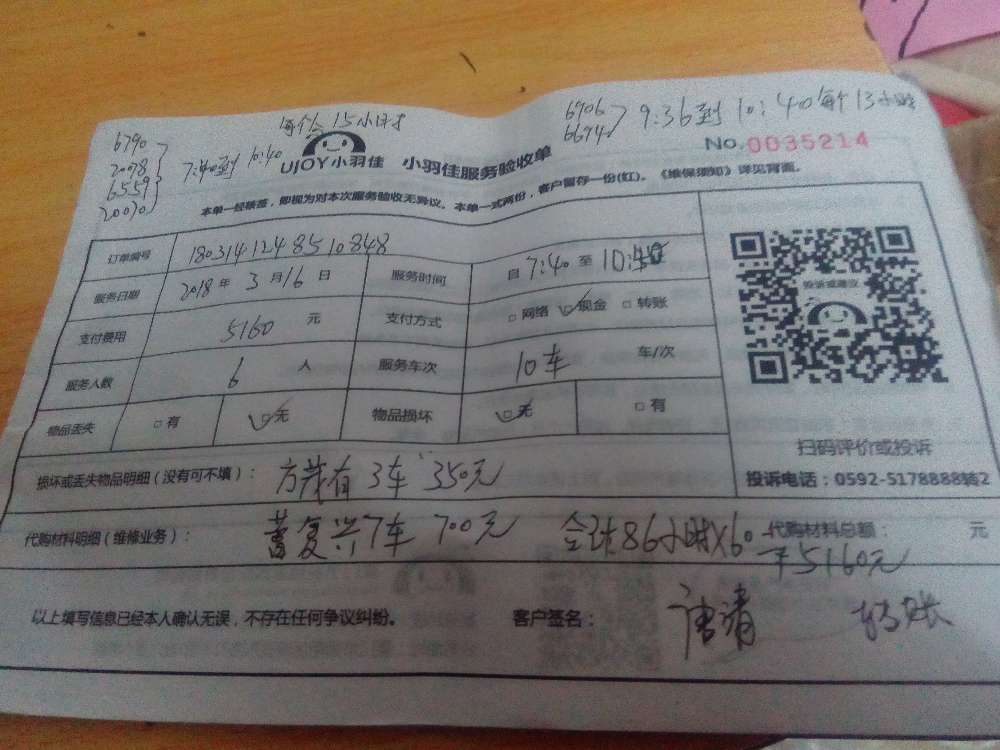 6790
2078
6559
20030
7:40到10:40
每个会15小时
6906
6694
9:36到10:40每个13小时
UJOY小羽佳 小羽佳服务验收单
No.0035214
本单一经验签，即视为对本次服务验收无异议。本单一式两份，客户留存一份(红)。《维保须知》详见背面。
订单编号 1803141248510848
服务日期 2018年3月16日 服务时间 自7:40至10:
支付费用 5160元 支付方式 □网络 ☑现金 □转账
服务人数 6人 服务车次 10车 车/次
物品丢失 □有 ☑无 物品损坏 ☑无 □有
损坏或丢失物品明细（没有可不填）： 方茂有3车 350元
代购材料明细（维修业务）： 董复兴7车 700元 合计86小时X60 代购材料总额： 元
¥5160元
以上填写信息已经本人确认无误，不存在任何争议纠纷。 客户签名： 唐清
投诉或建议
扫码评价或投诉
投诉电话：0592-5178888转2